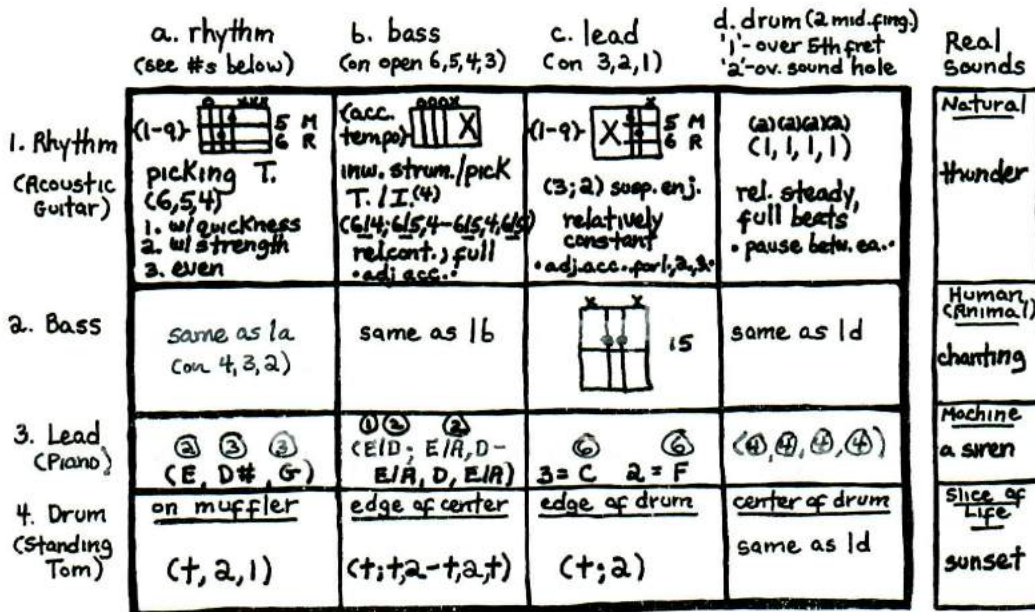 a. rhythm
(see #s below)
b. bass
(on open 6,5,4,3)
c. lead
(on 3,2,1)
d. drum (2 mid.fing.)
'1'-over 5th fret
'2'-ov. sound hole
Real
Sounds
1. Rhythm
(Acoustic
Guitar)
o xxx
(1-9) 5 M
6 R
picking T.
(6,5,4)
1. w/quickness
2. w/strength
3. even
ooox
(acc.
tempo) X
inw. strum./pick
T./I.(4)
(6/4;6/5,4-6/5,4,6/5)
rel.cont., full
•adj.acc.•
x
(1-9) X 5 M
6 R
(3;2) susp. enj.
relatively
constant
•adj.acc. for 1.,2.,3.•
(2)(2)(2)(2)
(1, 1, 1, 1)
rel. steady,
full beats
•pause betw. ea.•
Natural
thunder
2. Bass
same as 1a
(on 4,3,2)
same as 1b
x x
15
same as 1d
Human
(Animal)
chanting
3. Lead
(Piano)
② ③ ③
(E, D#, G)
① ② ②
(E/D; E/A, D-
E/A, D, E/A)
⑥ ⑥
3=C 2=F
(④,④,④,④)
Machine
a siren
4. Drum
(Standing
Tom)
on muffler
(t,2,1)
edge of center
(t;t,2-t,2,t)
edge of drum
(t;2)
center of drum
same as 1d
Slice of
Life
sunset